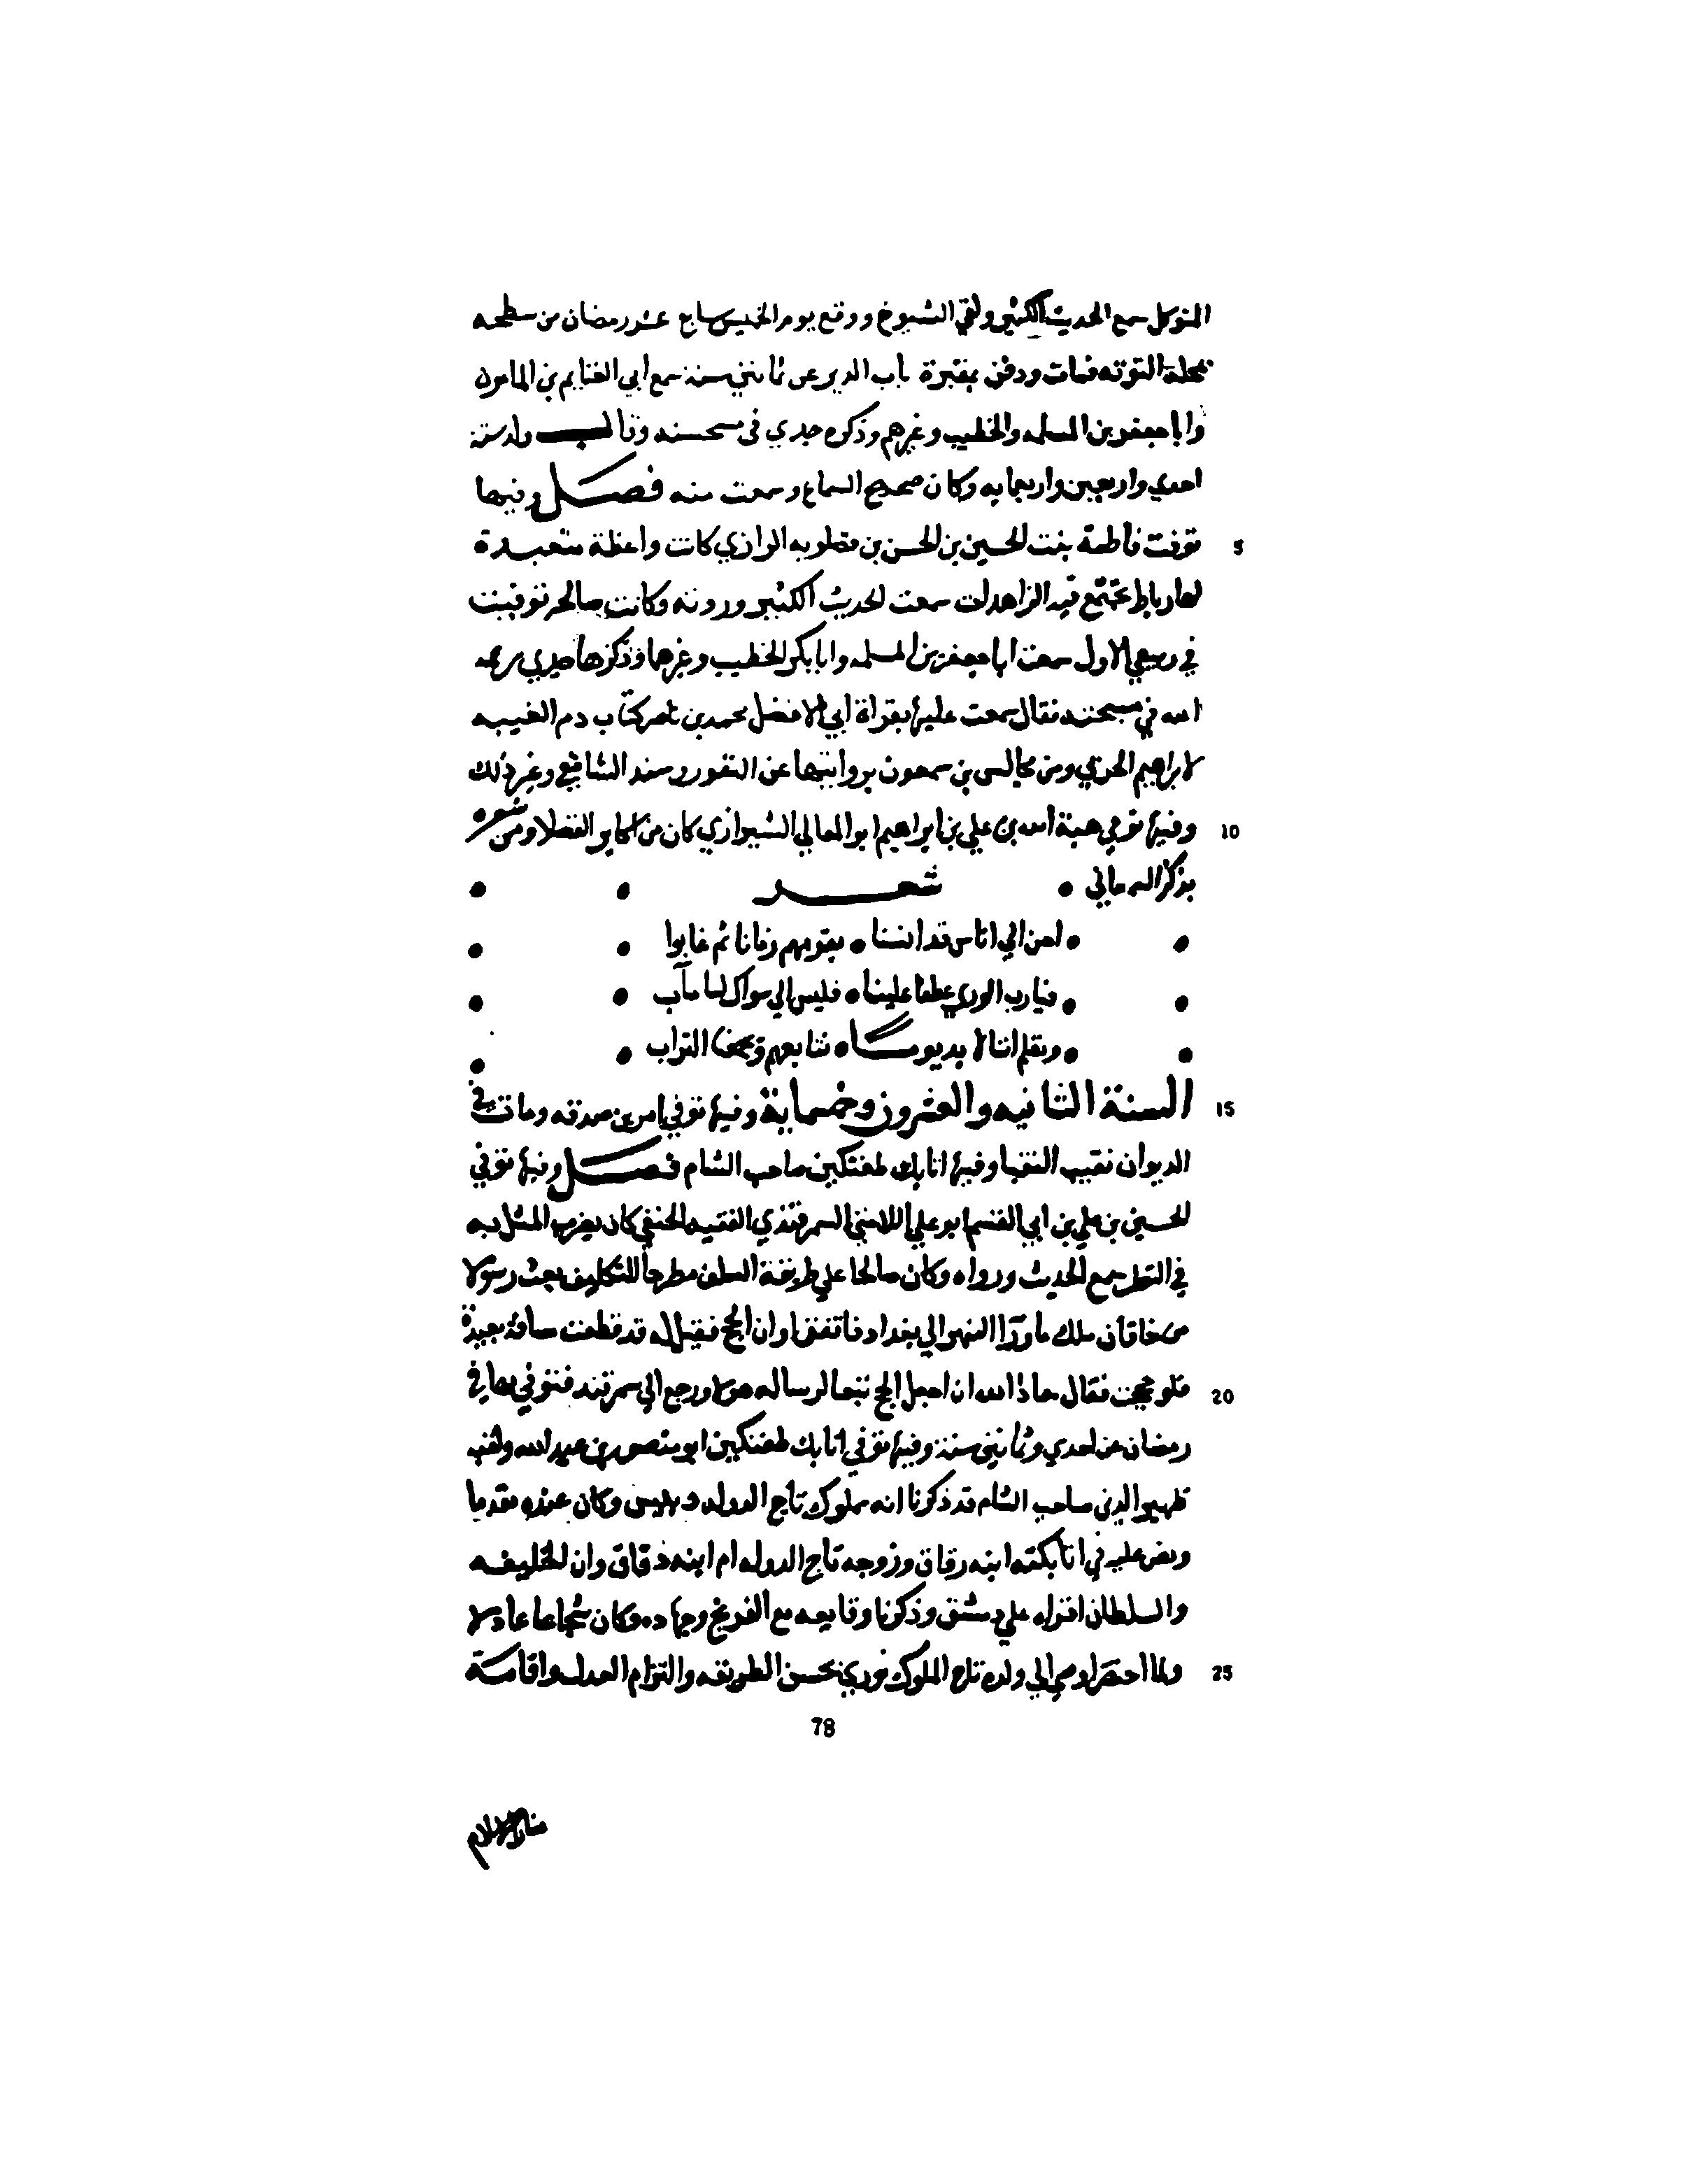 المتوكل سمع الحديث الكثير ولقي الشيوخ ووقع يوم الخميس سابع عشر رمضان من سطحه
بمحلة التوثه فمات ودفن بمقبرة باب الدير عن ثمانين سنة سمع ابي الغنايم بن المامون
وابا جعفر بن المسلمه والخطيب وغيرهم وذكره جدي في مسحسنه وقال ولد سنة
احدي واربعين واربعمايه وكان صحيح السماع وسمعت منه فصل وفيها
5 توفت فاطمة بنت الحسين بن الحسن بن فضلويه الرازي كانت واعظة متعبدة
لها رباط تجتمع فيه الزاهدات سمعت الحديث الكثير وروته وكانت صالحه توفيت
في ربيع الاول سمعت ابا جعفر بن المسلمه وابا بكر الخطيب وغيرهما وذكرها جدي رحمه
الله في مسحنه فقال سمعت عليها بقراة ابي الافضل محمد بن ناصر كتاب دم الغيبه
لابراهيم الحربي ومن مجالس بن سمعون بروايتها عن النقور ومسند الشافعي وغير ذلك
10 وفيها توفي هبة الله بن علي بن ابراهيم ابو المعالي الشيرازي كان من اكابر الفضلا ومن شعره
يذكر
شعر
احن الي اناس قد انسنا بقربهم زمانا ثم غابوا
فيارب الوري عطفا علينا فليس الي سواك لنا مآب
ونعلم اننا لا بد يوما نتابعهم ويجمعنا التراب
15 السنة الثانيه والعشرون وخمسماية وفيها توفي بن صدقه وما قر في
الديوان نقيب النقبا وفيها اتابك طغتكين صاحب الشام فصل وفيها توفي
الحسين بن علي بن ابي القسم ابو علي اللامشي السمرقندي الفقيه الحنفي كان يضرب المثل به
في النظر سمع الحديث ورواه وكان صالحا علي طريقة السلف مطرحا للتكليف بعث رسولا
من خاقان ملك ماورآا النهر الي بغداد فاتفق اوان الحج فقيل له قد قطعت مسافة بعيدة
20 فلو حججت فقال معاذ الله ان اجعل الحج تبعا لرساله هولا ورجع الي سمرقند فتوفي بها في
رمضان عن احدي وثمانين سنة وفيها توفي اتابك طغتكين ابو منصور بن عبد الله ولقبه
ظهير الدين صاحب الشام قد ذكرنا انه مملوك تاج الدوله وكان عنده مقدما
ونص عليه في اتابكته ابنه رقاق وزوجه تاج الدوله ام ابنه دقاق وان الخليفه
والسلطان اقراه علي دمشق وذكرنا وقايعه مع الفرنج وجهاده وكان شجاعا عادلا
25 ولما احتضر اوصي الي ولده تاج الملوك بوري بحسن الطريقه والتزام العدل واقامة
78